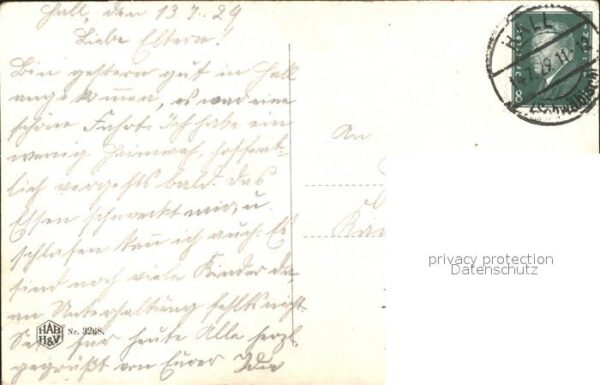 Hall, den 13.7.29
Liebe Eltern!
Bin gestern gut in Hall
angekommen, es war eine
schöne Fahrt. Ich habe ein
wenig Heimweh, hoffent-
lich vergehts bald. Das
Essen schmeckt mir, u.
schlafen kan ich auch. Es
sind noch viele Kinder da
an Unterhaltung fehlts nicht.
für heute Alle herzl.
gegrüßt von Eurer
HAB
H&V
Nr. 3268.
An
HALL
13.7.29.11-12
(Schwäbisch)
8
privacy protection
Datenschutz